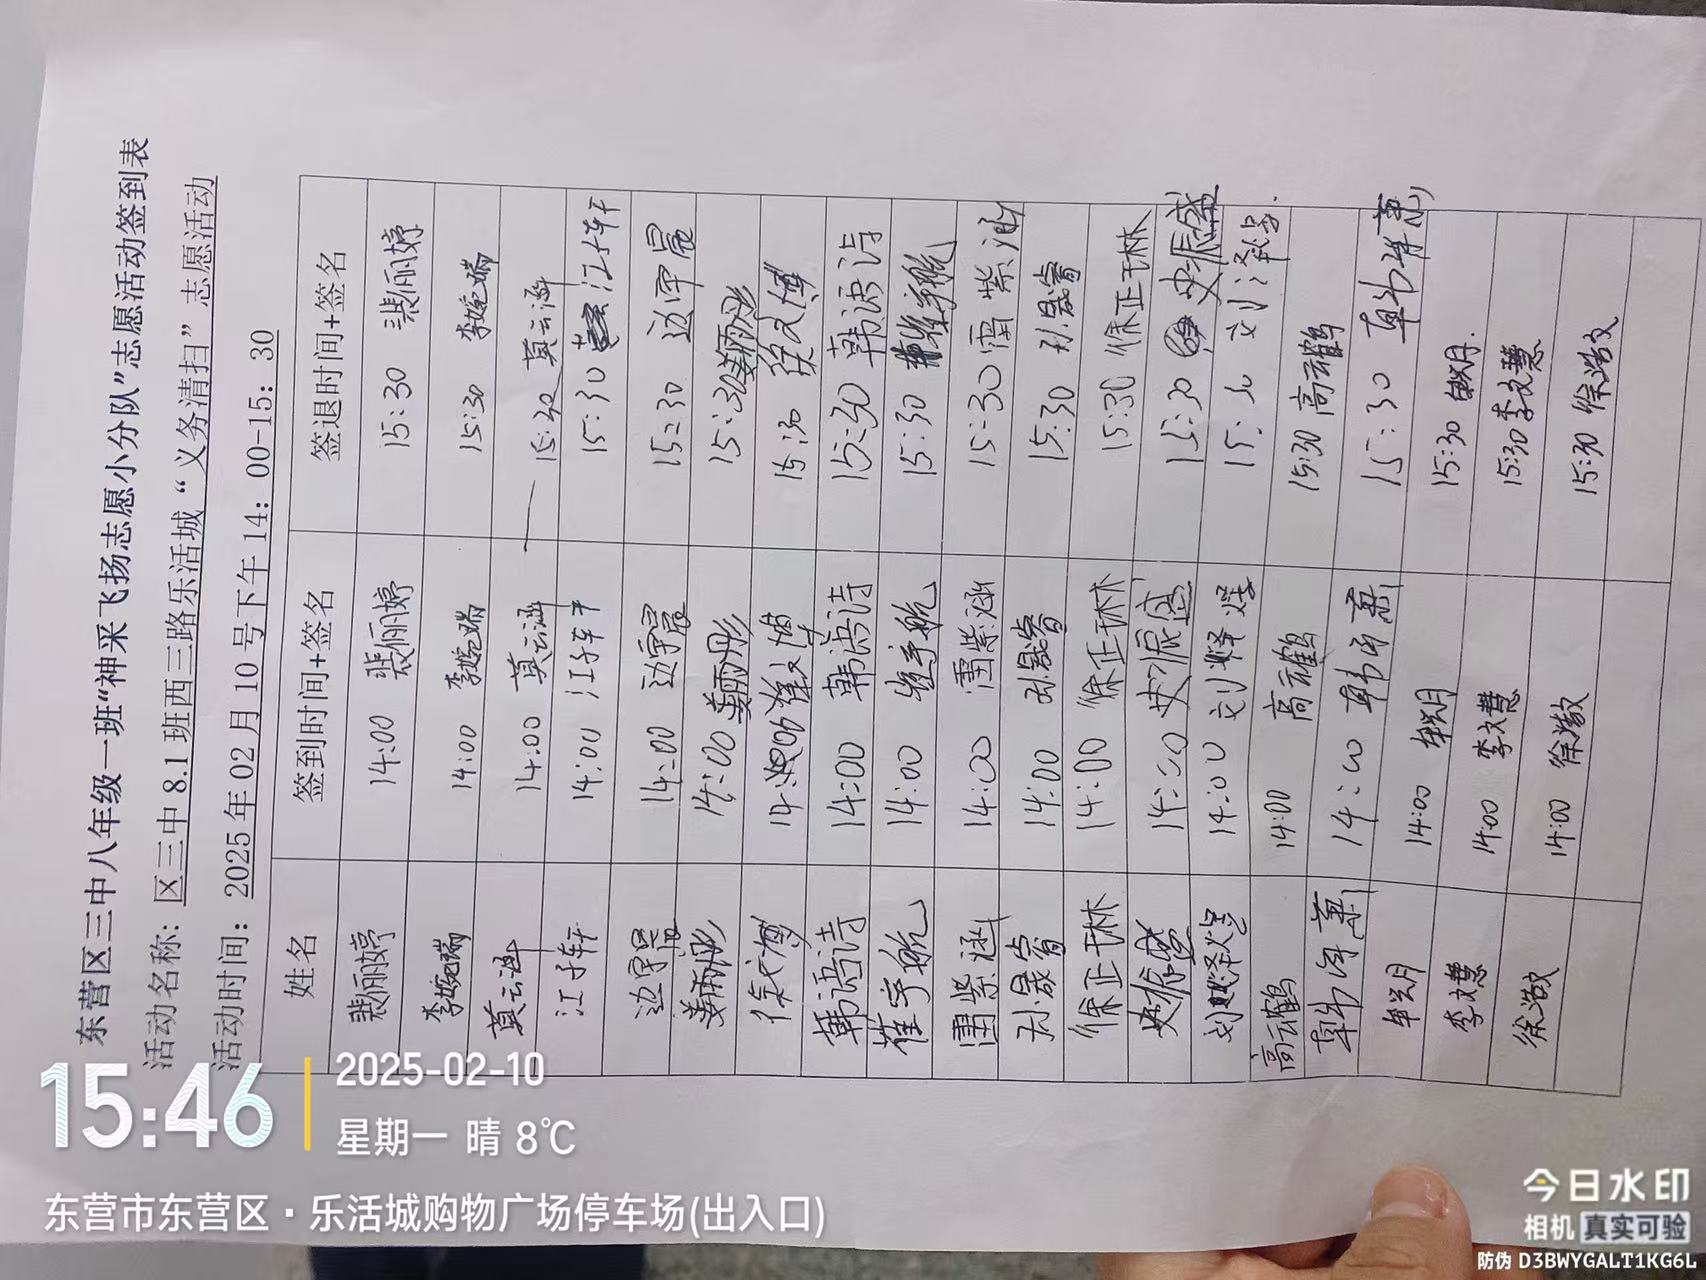 东营区三中八年级一班“神采飞扬志愿小分队”志愿活动签到表
活动名称：区三中 8.1 班西三路乐活城“义务清扫”志愿活动
活动时间：2025 年 02 月 10 号下午 14：00-15：30
姓名 签到时间+签名 签退时间+签名
裴俪婷 14:00 裴俪婷 15:30 裴俪婷
李婉瑞 14:00 李婉瑞 15:30 李婉瑞
莫云涵 14:00 莫云涵 15:30 莫云涵
江子轩 14:00 江子轩 15:30 江子轩
14:00 15:30
姜雨彤 14:00 姜雨彤 15:30 姜雨彤
徐文博 14:00 徐文博 15:30 徐文博
韩语诗 14:00 韩语诗 15:30 韩语诗
崔宇航 14:00 崔宇航 15:30 崔宇航
雷紫涵 14:00 雷紫涵 15:30 雷紫涵
14:00 15:30
徐正林 14:00 徐正林 15:30 徐正林
史振盛 14:00 史振盛 15:30 史振盛
14:00 15:30
高云鹤 14:00 高云鹤 15:30 高云鹤
14:00 15:30
14:00 15:30
李文慧 14:00 李文慧 15:30 李文慧
徐浩文 14:00 徐浩文 15:30 徐浩文
15:46
2025-02-10
星期一 晴 8℃
东营市东营区·乐活城购物广场停车场(出入口)
今日水印
相机 真实可验
防伪 D3BWYGALT1KG6L